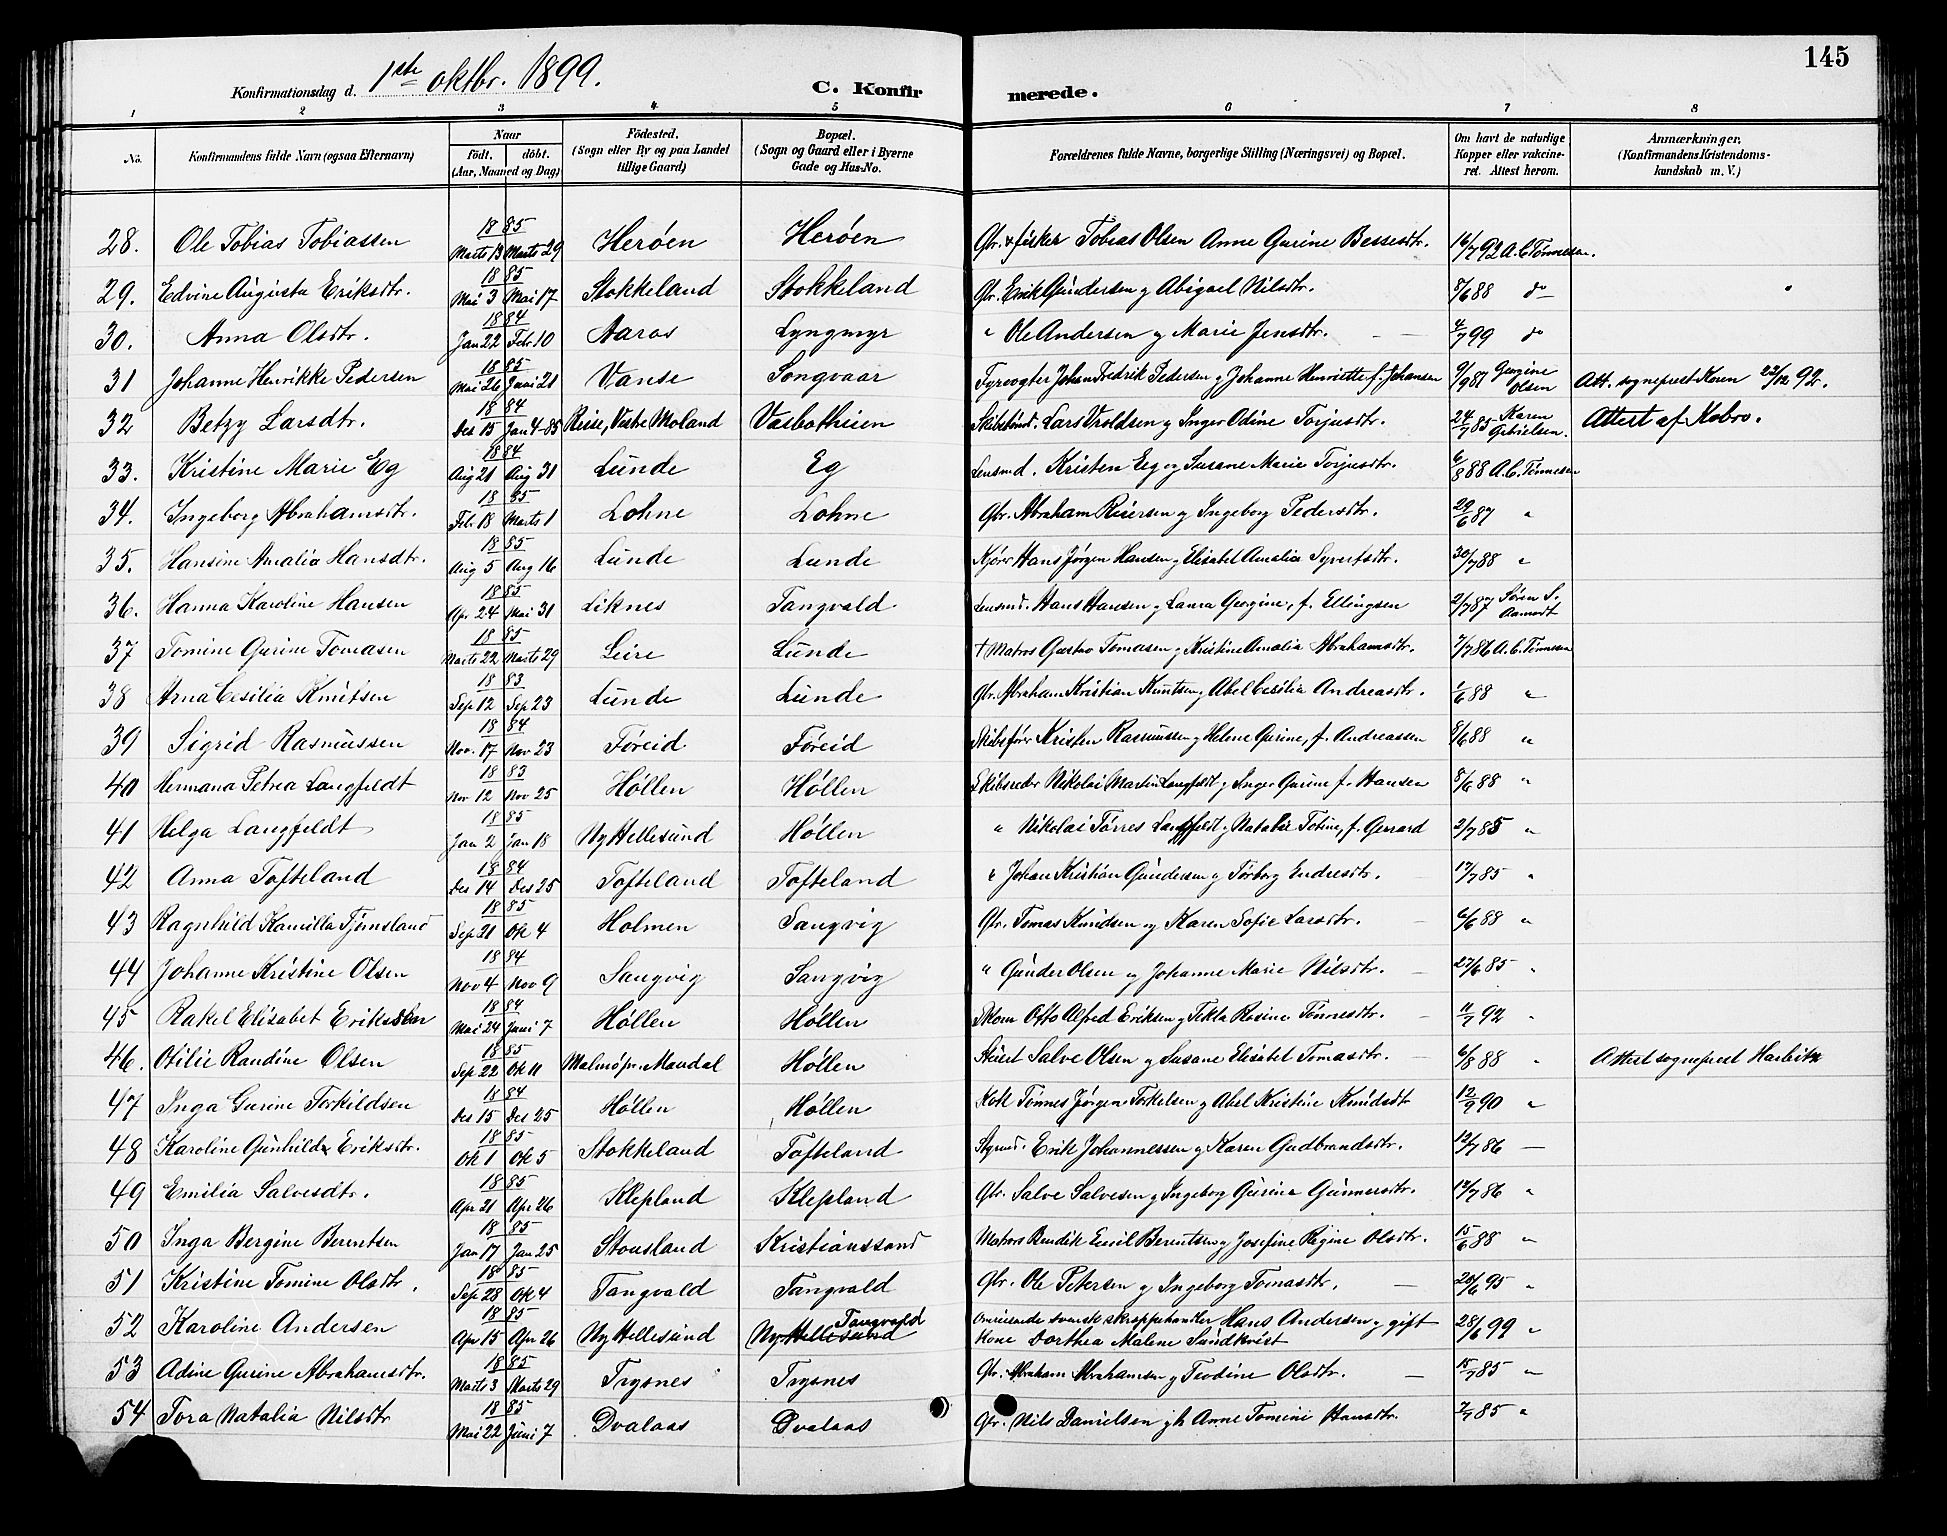 145
Konfirmationsdag d. 1ste oktbr. 1899.
C. Konfirmerede.
1 2 3 4 5 6 7 8
No. | Konfirmandens fulde Navn (ogsaa Efternavn) | Naar födt. döbt. (Aar, Maaned og Dag) | Födested. (Sogn eller By og paa Landet tillige Gaard) | Bopæl. (Sogn og Gaard eller i Byerne Gade og Hus-No. | Forældrenes fulde Navne, borgerlige Stilling (Næringsvei) og Bopæl. | Om havt de naturlige Kopper eller vakcineret. Attest herom. | Anmærkninger, (Konfirmandens Kristendomskundskab m. V.)
28. Ole Tobias Tobiassen | 1885 Marts 13 Marts 29 | Herøen | Herøen | Gbr. & fisker Tobias Olsen Anne Gurine Bessesdtr. | 16/7 92 A. C. Tønnessen.
29. Edvine Augusta Eriksdtr. | 1885 Mai 3 Mai 17 | Stokkeland | Stokkeland | Gbr. Erik Gundersen og Abigael Nilsdtr. | 8/6 88 do
30. Anna Olsdtr. | 1884 Jan 22 Febr 10 | Aaros | Lyngmyr | " Ole Andersen og Marie Jensdtr. | 4/7 99 do
31 Johanne Henrikke Pedersen | 1885 Mai 26 Juni 21 | Vanse | Songvaar | Fyrvogter Johan Fredrik Pedersen og Johanne Henriette f. Johansen | 9/9 87 Georgine Olsen | Att. sogneprest Koren 22/12 92.
32 Betzy Larsdtr. | 1884 Des 15 Jan 4-85 | Risse, Vestre Moland | Vasbotheien | Skibstind. Lars Vroldsen og Inger Odine Torjusdtr. | 24/7 85 Karen Gabrielsen. | Attest af Kobro.
33. Kristine Marie Eg | 1884 Aug 21 Aug 31 | Lunde | Eg | Lensmd. Kristen Eeg og Susane Marie Torjusdtr. | 6/8 88 A. C. Tønnessen
34. Ingeborg Abrahamsdtr. | 1885 Feb. 18 Marts 1 | Lohne | Lohne | Gbr. Abraham Reiersen og Ingeborg Pedersdtr. | 29/6 87 "
35. Hansine Amalia Hansdtr. | 1885 Aug 5 Aug 16 | Lunde | Lunde | Kjører Hans Jørgen Hansen og Elisabet Amalia Syvertsdtr. | 30/7 88 "
36. Hanna Karoline Hansen | 1885 Apr 24 Mai 31 | Liknes | Tangvald | Lensmd. Hans Hansen og Laura Georgine, f. Ellingsen | 2/7 87 Søren S. Aamodt
37 Tomine Gurine Tomasen | 1885 Marts 22 Marts 29 | Leire | Lunde | † Matros Gustav Tomasen og Kristine Amalia Abrahamsdtr. | 7/7 86 A. C. Tønnessen
38 Anna Cesilia Knutsen | 1883 Sep 12 Sep 23 | Lunde | Lunde | Gbr. Abraham Kristian Knutsen og Abel Cesilia Andreasdtr. | 1/6 88 "
39 Sigrid Rasmussen | 1884 Nov. 17 Nov 23 | Føreid | Føreid | Skibsfører Kristen Rasmussen og Helene Gurine, f. Andreassen | 8/6 88 "
40 Hermana Petrea Langfeldt | 1883 Nov 12 Nov 25 | Høllen | Høllen | Skibsreder Nikolai Martin Langfeldt og Inger Gurine f. Hansen | 8/6 88 "
41 Helga Langfeldt | 1885 Jan 2 Jan 18 | Ny Hellesund | Høllen | " Nikolai Tørres Langfeldt og Natalie Tobine, f. Gerrard | 2/7 85 "
42 Anna Tofteland | 1884 Des 14 Des 25 | Tofteland | Tofteland | " Johan Kristian Gundersen og Torborg Endresdtr. | 17/7 85 "
43 Ragnhild Kamilla Tjomsland | 1885 Sep 21 Ok 4 | Holmen | Sangvig | Gbr. Tomas Knudsen og Karen Sofie Larsdtr. | 6/6 88 "
44 Johanne Kristine Olsen | 1884 Nov 4 Nov 9 | Sangvig | Sangvig | " Gunder Olsen og Johanne Marie Nilsdtr. | 27/6 85 "
45 Rakel Elisabet Eriksen | 1884 Mai 24 Juni 7 | Høllen | Høllen | Otto Alfred Eriksen og Tekla Rosine Tønnesdtr. | 11/7 92 "
46. Otilie Randine Olsen | 1885 Sep 22 Ok 11 | Malmø pr. Mandal | Høllen | Stuert Salve Olsen og Susane Elisabet Tomasdtr. | 6/8 88 " | Attest sogneprest Harbitz
47 Inga Gurine Torkildsen | 1884 Des 15 Des 25 | Høllen | Høllen | Kok Tønnes Jørgen Torkelsen og Abel Kristine Knudsdtr | 12/9 90 "
48 Karoline Gunhilda Eriksdtr. | 1885 Ok 1 Ok 5 | Stokkeland | Tofteland | Styrmd. Erik Johannessen og Karen Gudbrandsdtr. | 12/7 86 —
49 Emilia Salvesdtr. | 1885 Apr 21 Apr 26 | Klepland | Klepland | Gbr. Salve Salvesen og Ingeborg Gurina Gunnersdtr. | 12/7 86 "
50 Inga Bergine Berentsen | 1885 Jan 17 Jan 25 | Stousland | Kristianssand | Matros Bendik Emil Berentsen og Josefine Regine Olsdtr. | 15/6 88 "
51 Kristine Tomine Olsdtr. | 1885 Sep 28 Ok 4 | Tangvald | Tangvald | Gbr. Ole Petersen og Ingeborg Tomasdtr. | 20/6 95 "
52 Karoline Andersen | 1885 Apr 15 Apr 26 | Ny Hellesund | Ny Hellesund Tangvald | Omreisende svensk skreppehandler Hans Andersen og gift kone Dorthea Malene Sundkvist | 28/6 99 "
53 Adine Gurine Abrahamsdtr. | 1885 Marts 3 Marts 29 | Trysnes | Trysnes | Gbr. Abraham Abrahamsen og Teodine Olsdtr. | 15/7 85 "
54 Tora Natalia Nilsdtr | 1885 Mai 22 Juni 7 | Dvalaas | Dvalaas | Gbr. Nils Danielsen og h. Anne Tomine Hansdtr. | 7/7 85 "